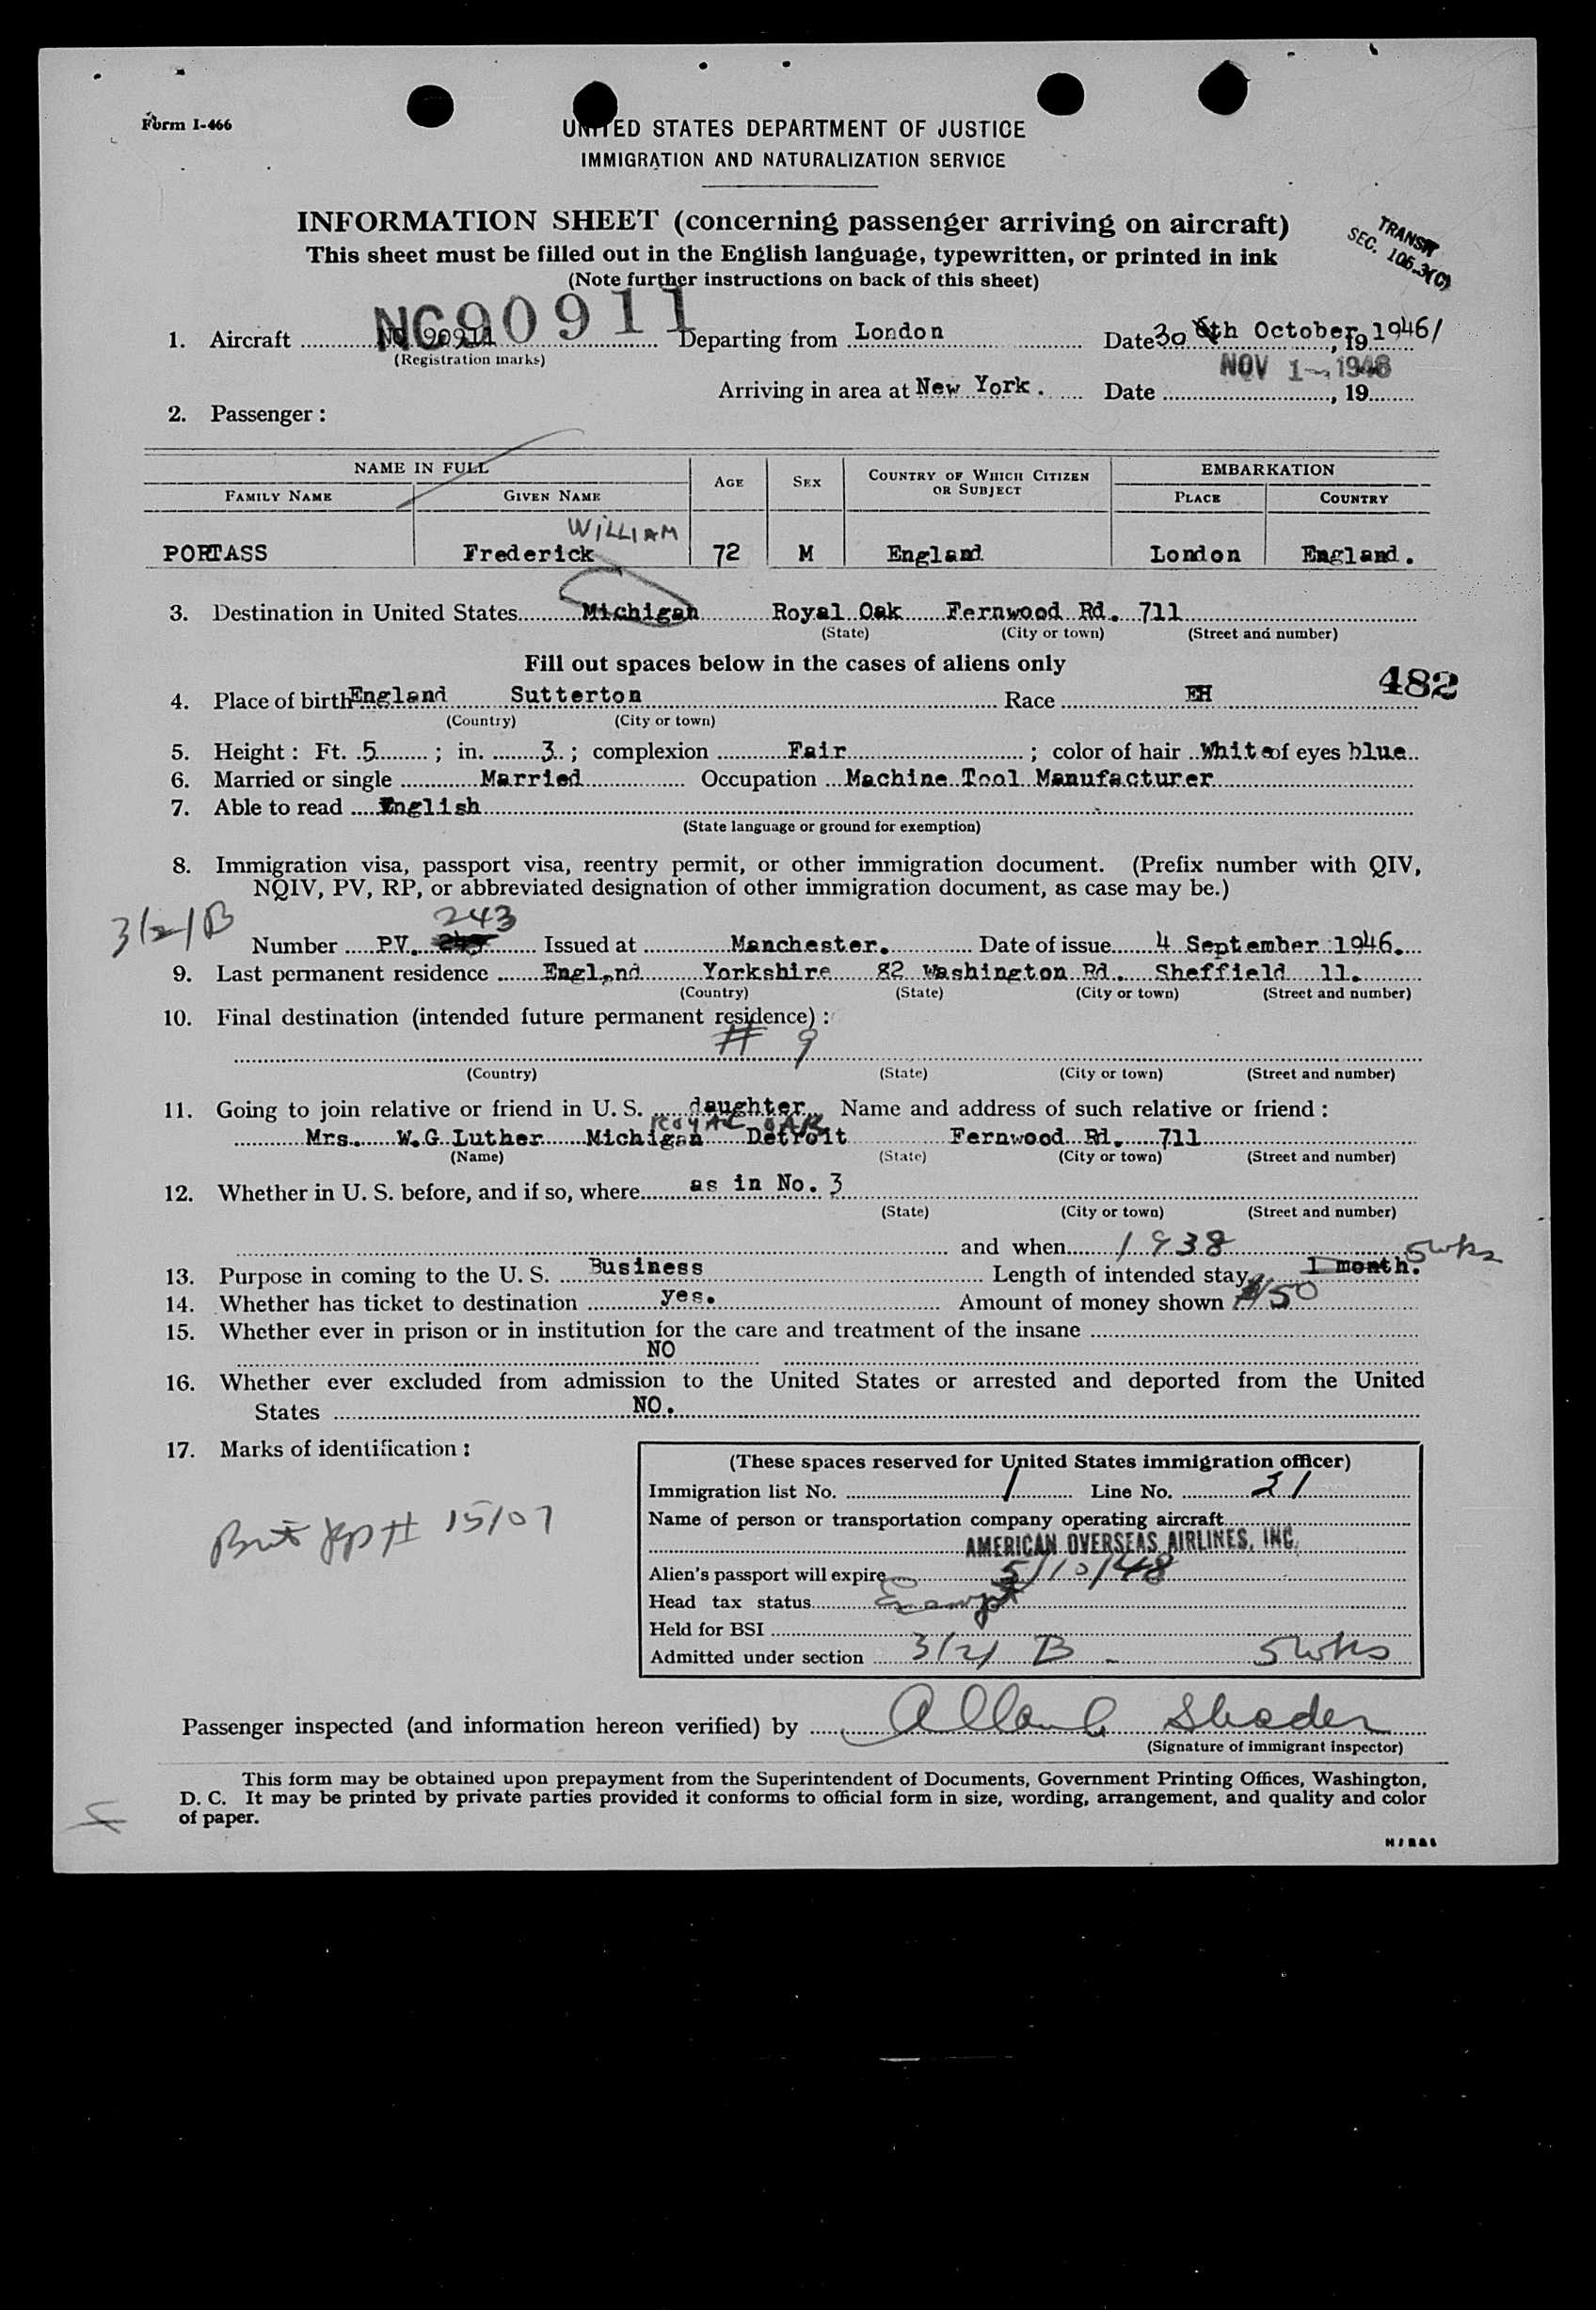 Form I-466
UNITED STATES DEPARTMENT OF JUSTICE
IMMIGRATION AND NATURALIZATION SERVICE
INFORMATION SHEET (concerning passenger arriving on aircraft)
This sheet must be filled out in the English language, typewritten, or printed in ink
(Note further instructions on back of this sheet)
TRANSIT
SEC. 105.3(C)
NC90911
1. Aircraft NC 90911 Departing from London Date 30 th October, 19 1946/
(Registration marks)
NOV 1 - 1946
Arriving in area at New York. Date , 19
2. Passenger:
NAME IN FULL EMBARKATION
FAMILY NAME GIVEN NAME AGE SEX COUNTRY OF WHICH CITIZEN OR SUBJECT PLACE COUNTRY
WILLIAM
PORTASS Frederick 72 M England London England.
3. Destination in United States Michigan Royal Oak Fernwood Rd. 711
(State) (City or town) (Street and number)
Fill out spaces below in the cases of aliens only
482
4. Place of birth England Sutterton Race EH
(Country) (City or town)
5. Height: Ft. 5 ; in. 3 ; complexion Fair ; color of hair White of eyes blue
6. Married or single Married Occupation Machine Tool Manufacturer
7. Able to read English
(State language or ground for exemption)
8. Immigration visa, passport visa, reentry permit, or other immigration document. (Prefix number with QIV,
NQIV, PV, RP, or abbreviated designation of other immigration document, as case may be.)
3/2/B 243
Number P.V. Issued at Manchester. Date of issue 4 September 1946.
9. Last permanent residence England Yorkshire 82 Washington Rd. Sheffield 11.
(Country) (State) (City or town) (Street and number)
10. Final destination (intended future permanent residence):
# 9
(Country) (State) (City or town) (Street and number)
11. Going to join relative or friend in U. S. daughter Name and address of such relative or friend:
ROYAL OAK
Mrs. W.G Luther Michigan Detroit Fernwood Rd. 711
(Name) (State) (City or town) (Street and number)
12. Whether in U. S. before, and if so, where as in No. 3
(State) (City or town) (Street and number)
and when 1938
5 wks
13. Purpose in coming to the U. S. Business Length of intended stay 1 month.
14. Whether has ticket to destination yes. Amount of money shown 50
15. Whether ever in prison or in institution for the care and treatment of the insane
NO
16. Whether ever excluded from admission to the United States or arrested and deported from the United
States NO.
17. Marks of identification:
(These spaces reserved for United States immigration officer)
Immigration list No. 1 Line No. 21
Name of person or transportation company operating aircraft
AMERICAN OVERSEAS AIRLINES, INC.
Brit # 15107
Alien's passport will expire 5/10/48
Head tax status Exempt
Held for BSI
Admitted under section 3/2/ B - 5 wks
Passenger inspected (and information hereon verified) by Allan Shader
(Signature of immigrant inspector)
This form may be obtained upon prepayment from the Superintendent of Documents, Government Printing Offices, Washington,
D. C. It may be printed by private parties provided it conforms to official form in size, wording, arrangement, and quality and color
of paper.